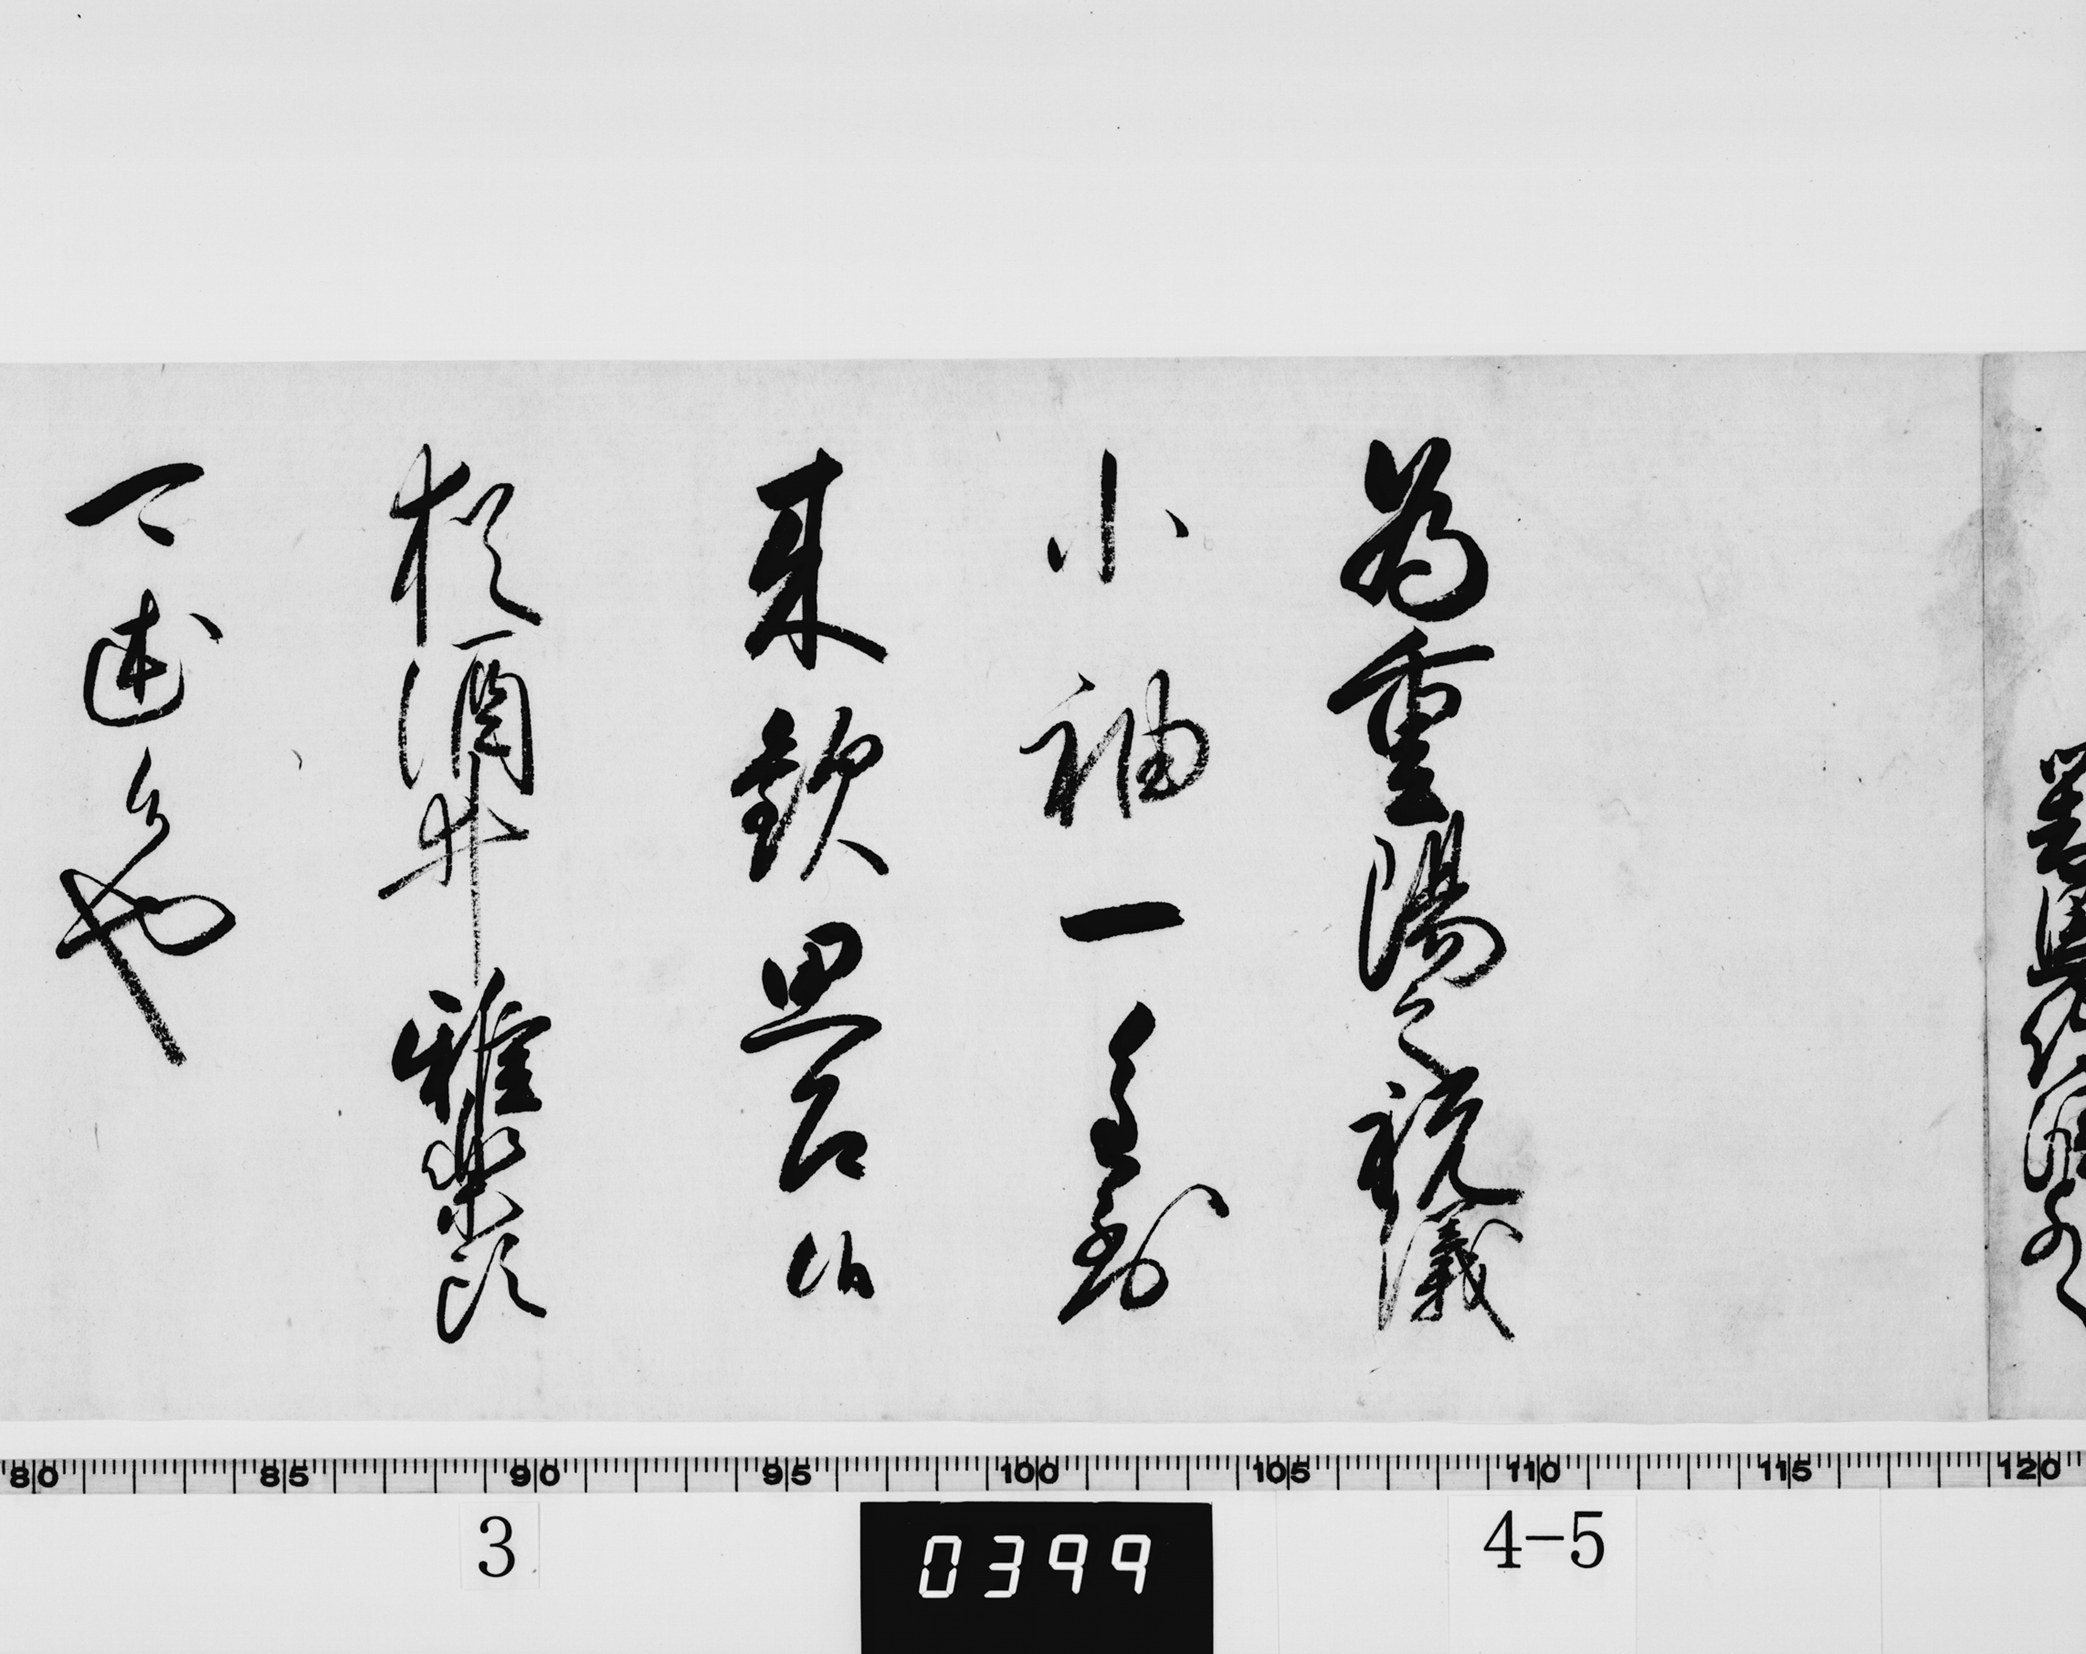 為重陽之祝儀
小袖一重到
来歓思召候
猶酒井雅楽頭
可述候也
80 85 90 95 100 105 110 115 120
3
0399
4-5